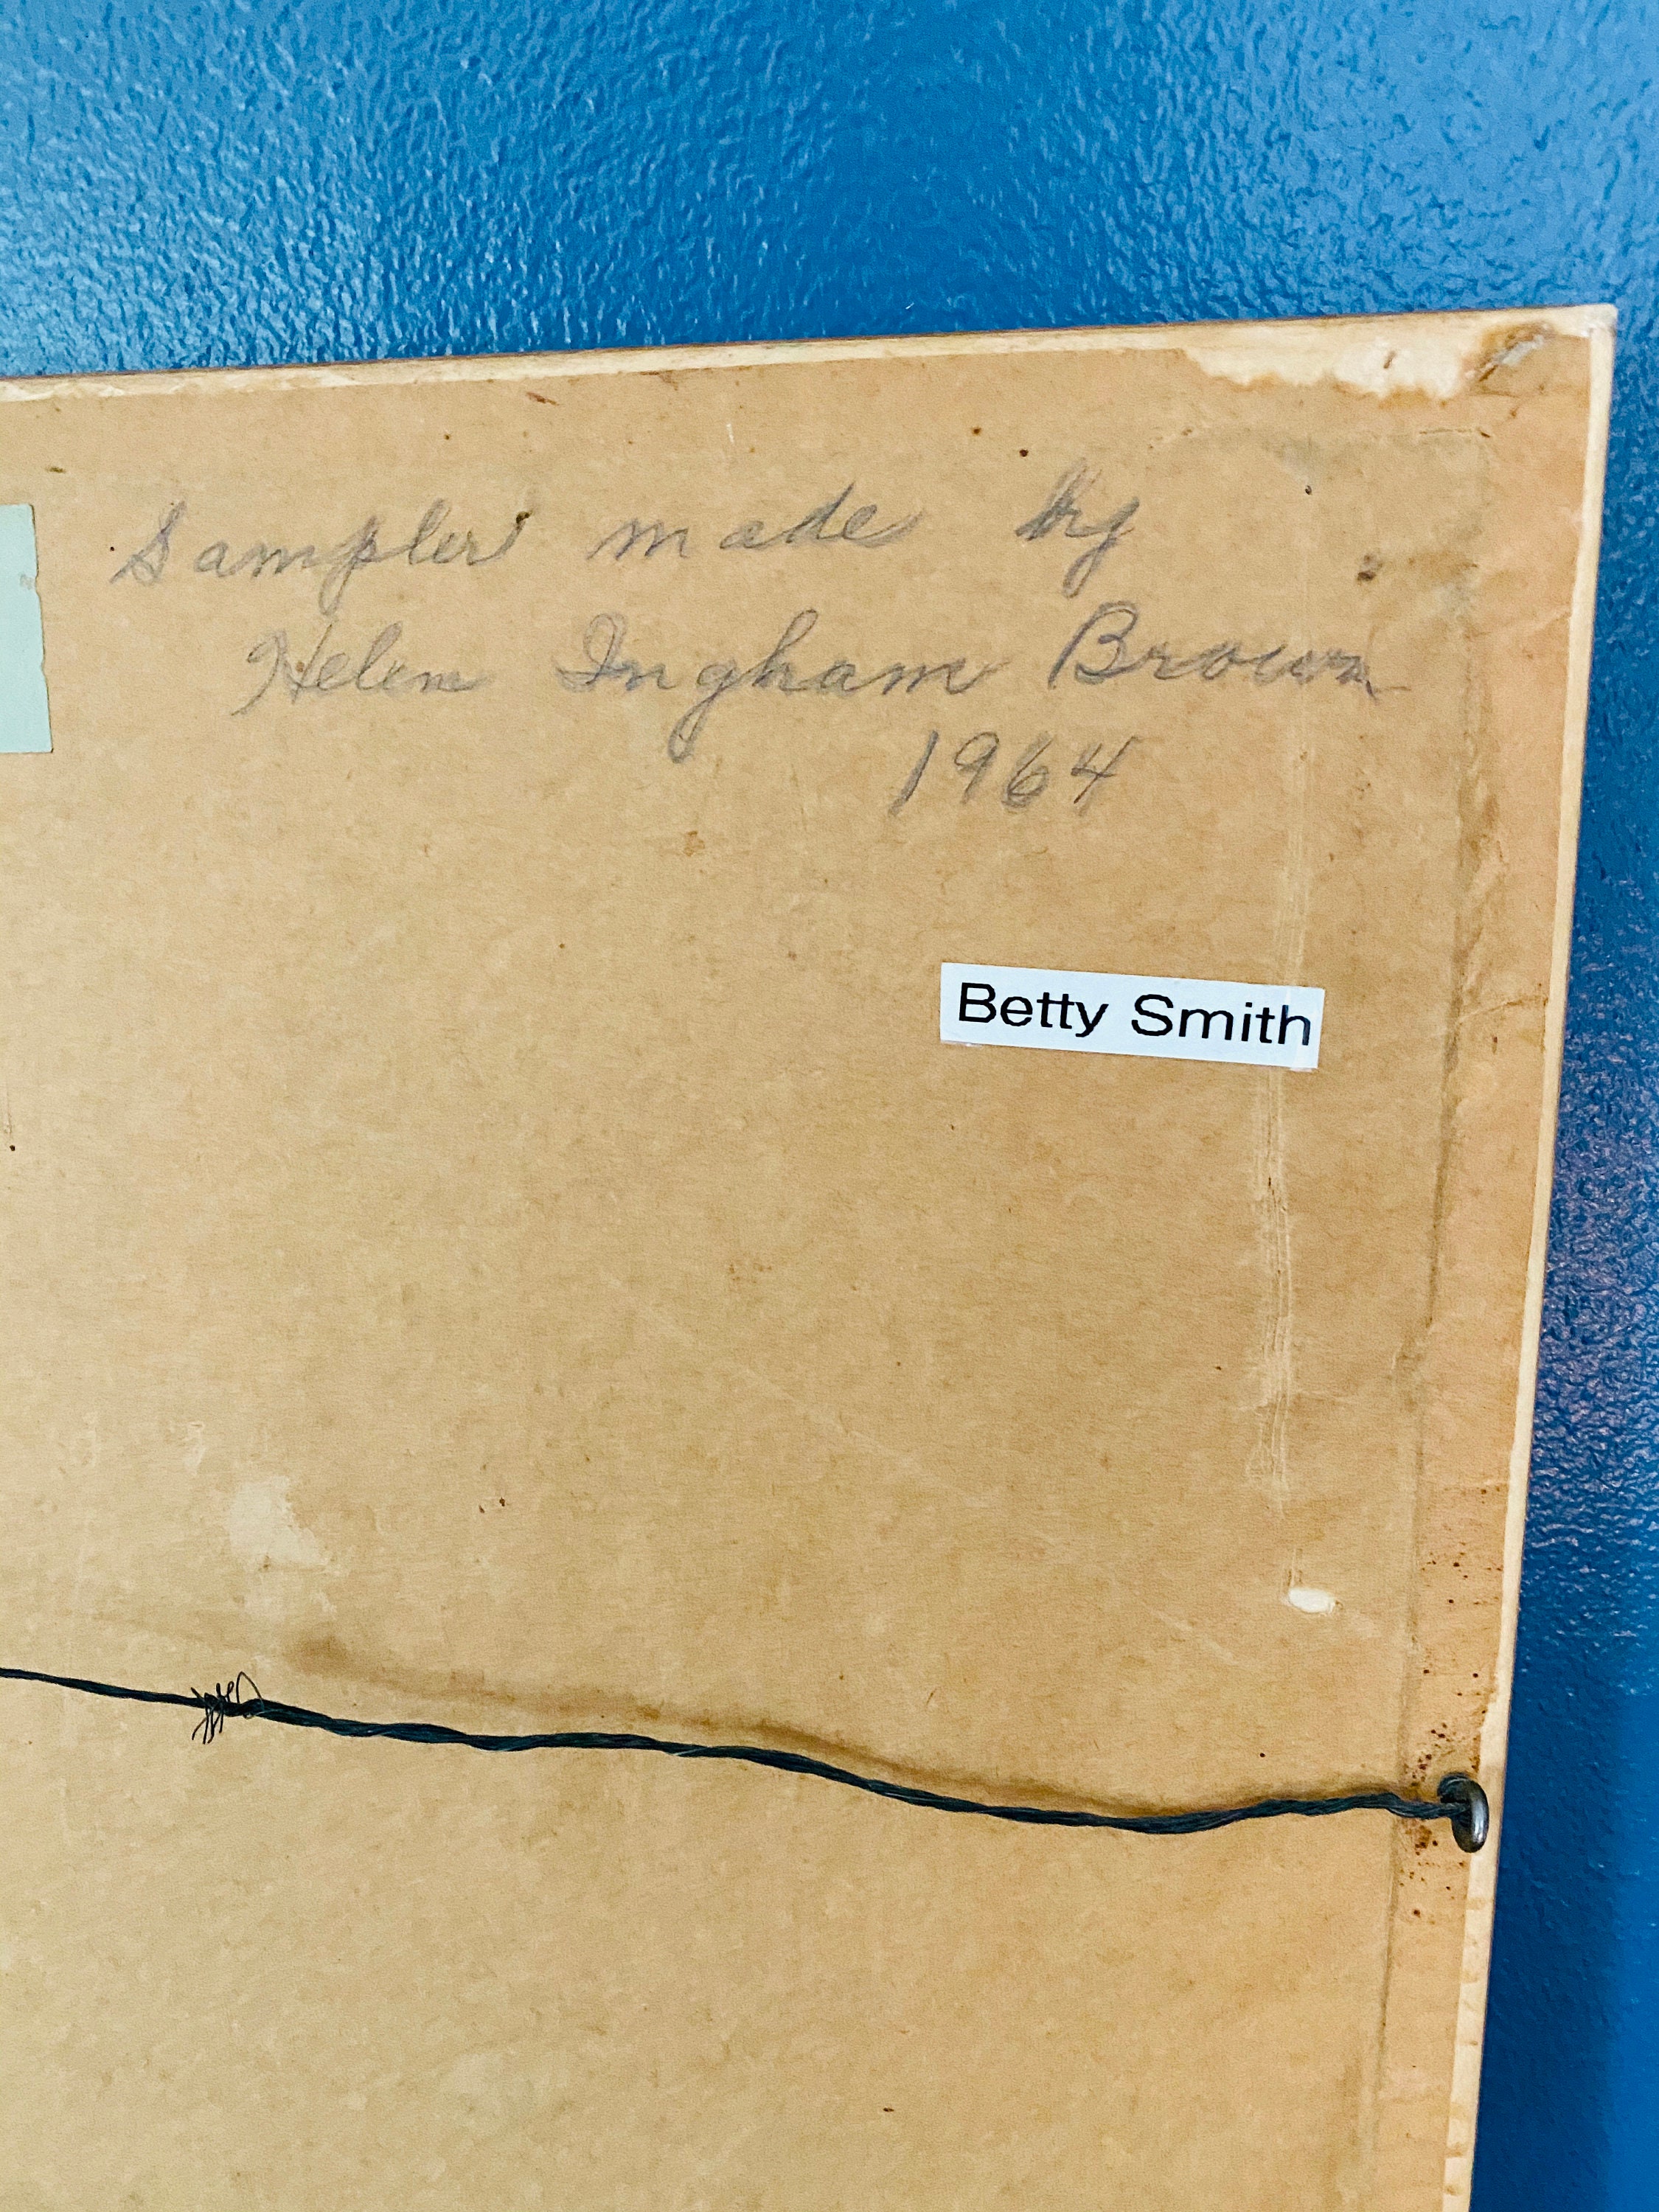 Sampler made by
Helen Ingham Brown
1964
Betty Smith